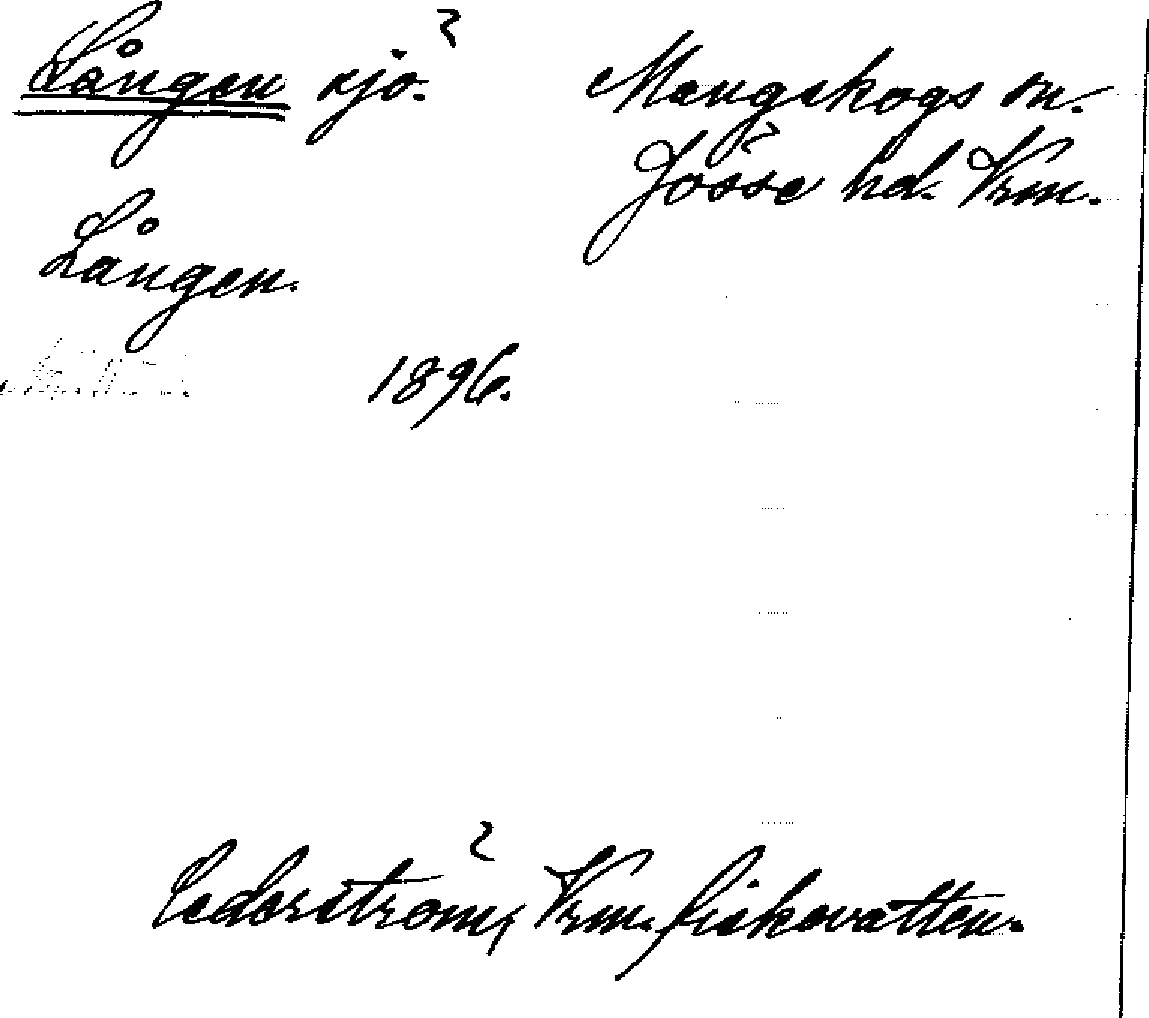 Lången sjö.
Mangskogs sn.
Jösse hd. Vrm.
Lången.
1896.
Cederström, Vrm. fiskevatten.